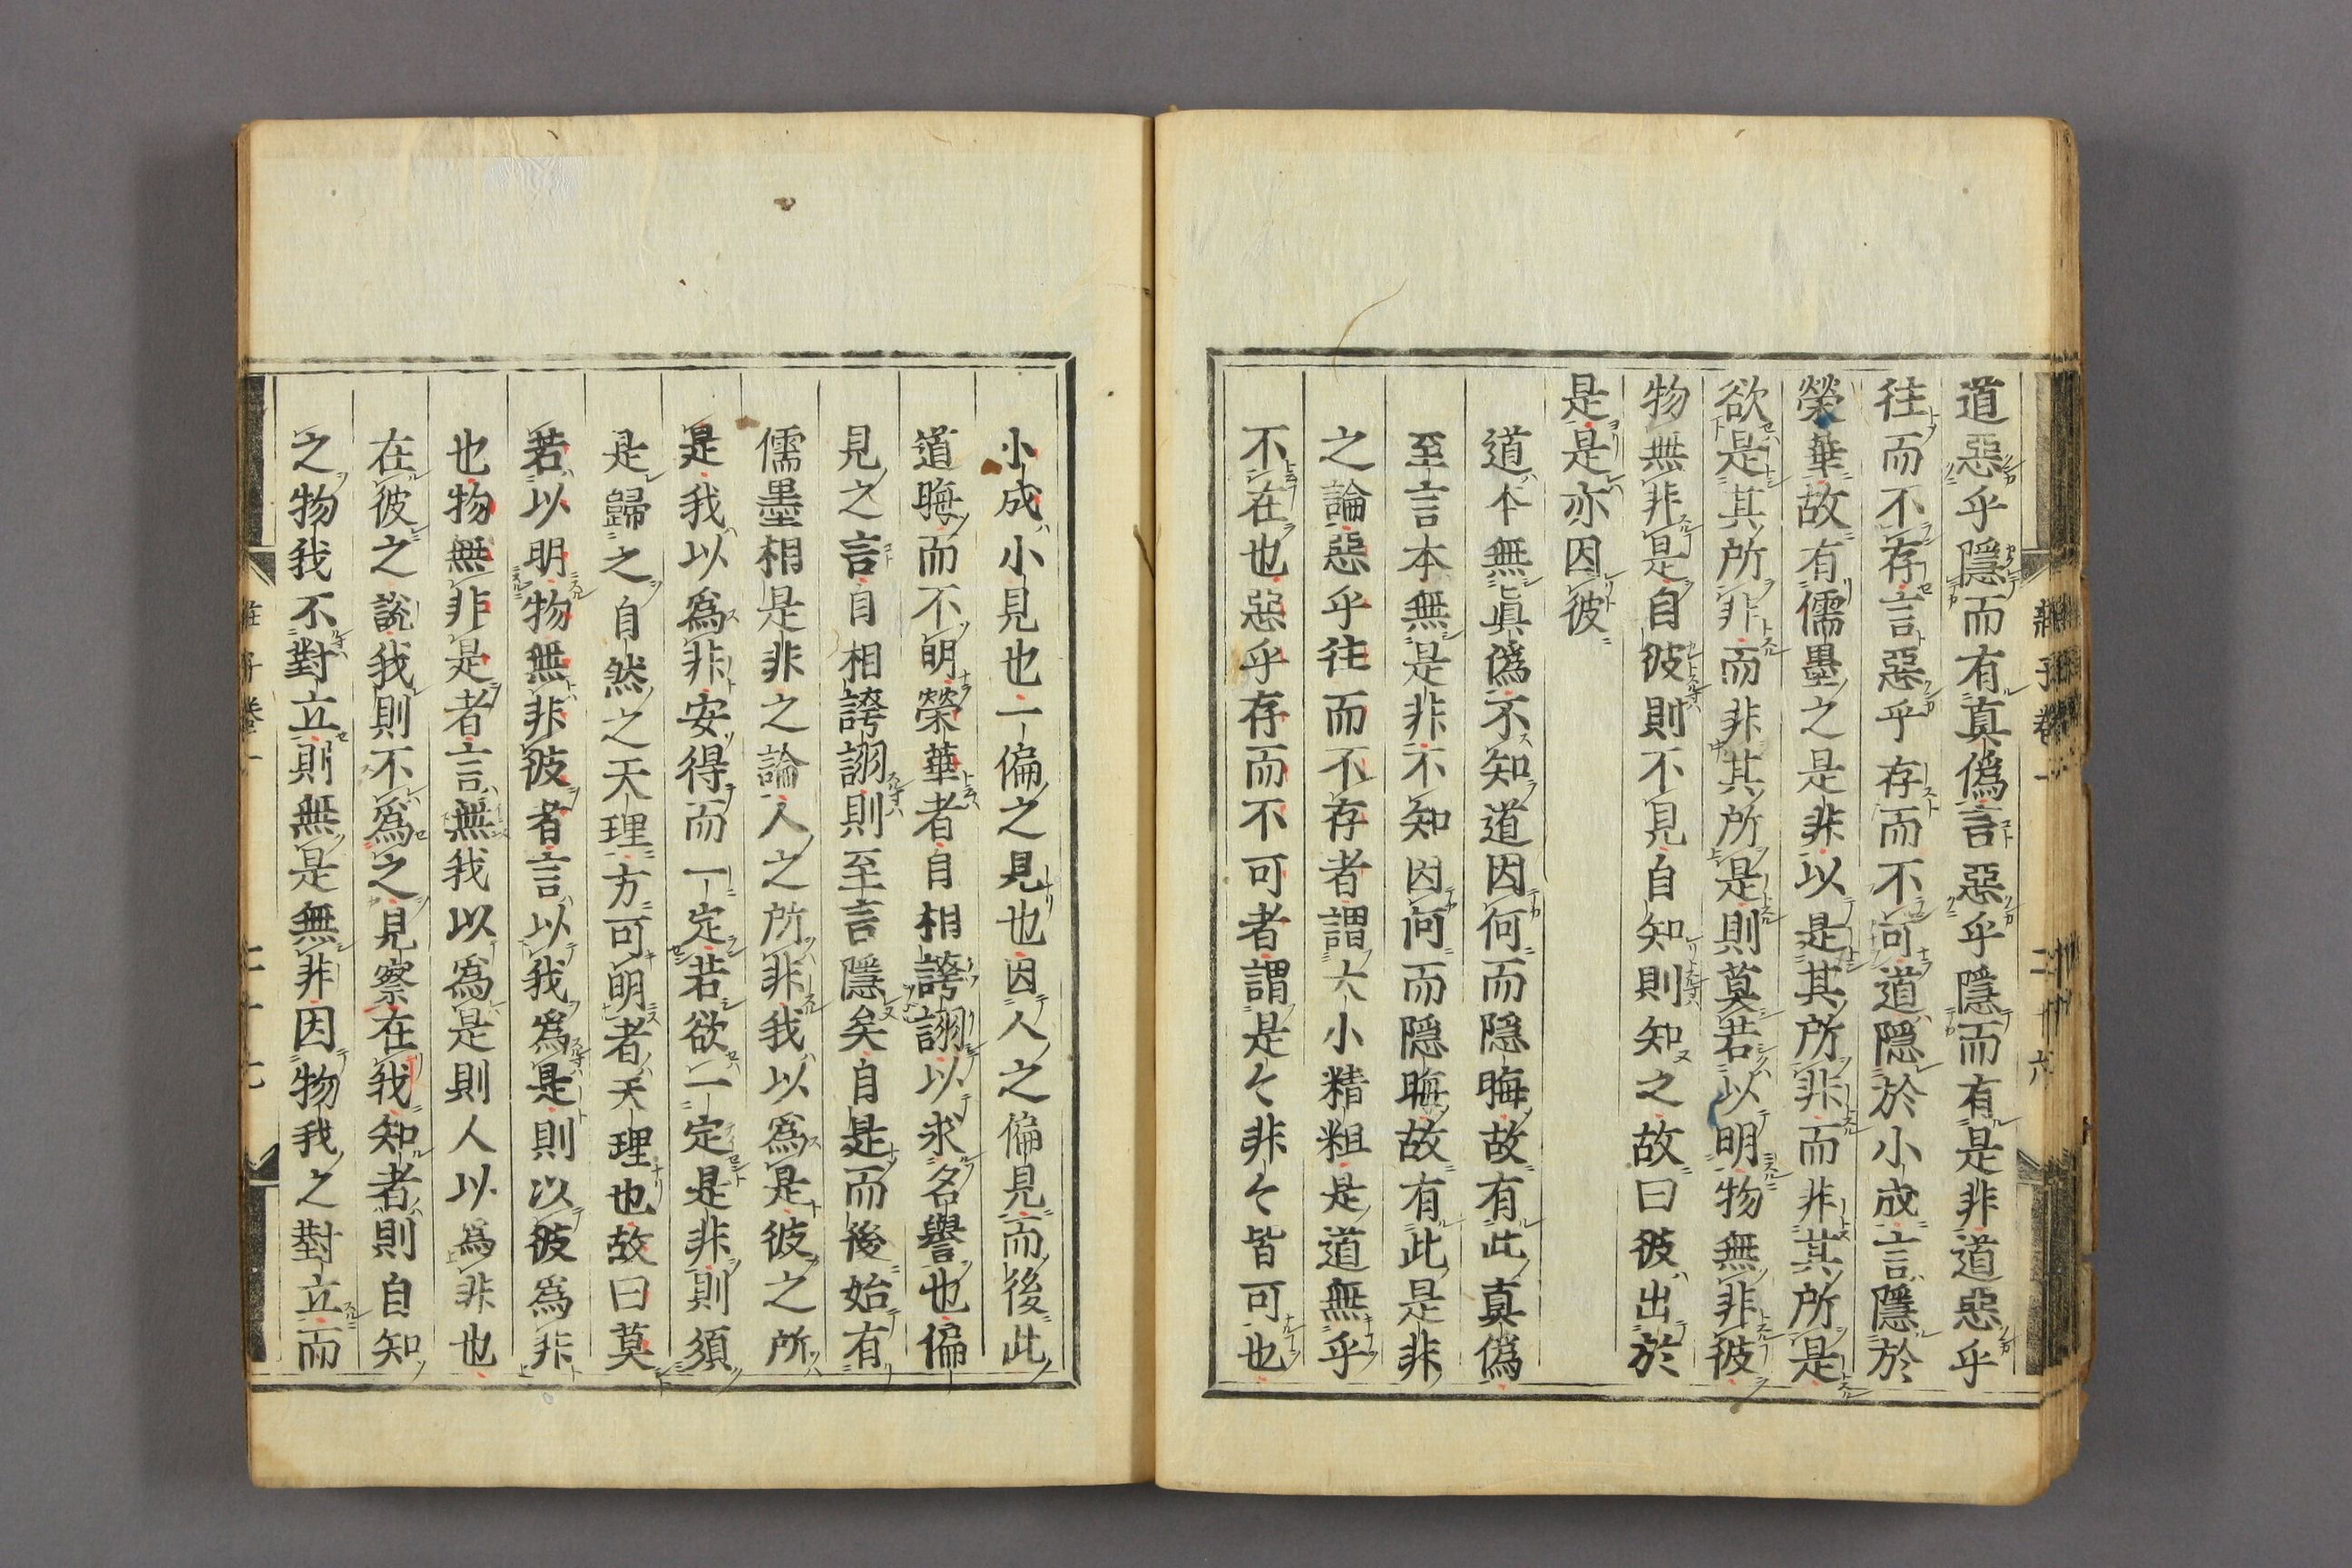 道惡乎隱而有真偽言惡乎隱而有是非道惡乎
往而不存言惡乎存而不可道隱於小成言隱於
榮華故有儒墨之是非以是其所非而非其所是
欲是其所非而非其所是則莫若以明物無非彼
物無非是自彼則不見自知則知之故曰彼出於
是是亦因彼
道本無眞僞不知道因何而隱晦故有此真偽
至言本無是非不知因何而隱晦故有此是非
之論惡乎往而不存者謂大小精粗是道無乎
不在也惡乎存而不可者謂是々非々皆可也
小成小見也一偏之見也因人之偏見而後此
道晦而不明榮華者自相誇詡以求名譽也偏
見之言自相誇詡則至言隱矣自是而後始有
儒墨相是非之論人之所非我以爲是彼之所
是我以爲非安得而一定若欲一定是非則須
是歸之自然之天理方可明者天理也故曰莫
若以明物無非彼者言以我爲是則以彼爲非
也物無非是者言無我以爲是則人以爲非也
在彼之說我則不爲之見察在我知者則自知
之物我不對立則無是無非因物我之對立而
莊子卷一
二十六